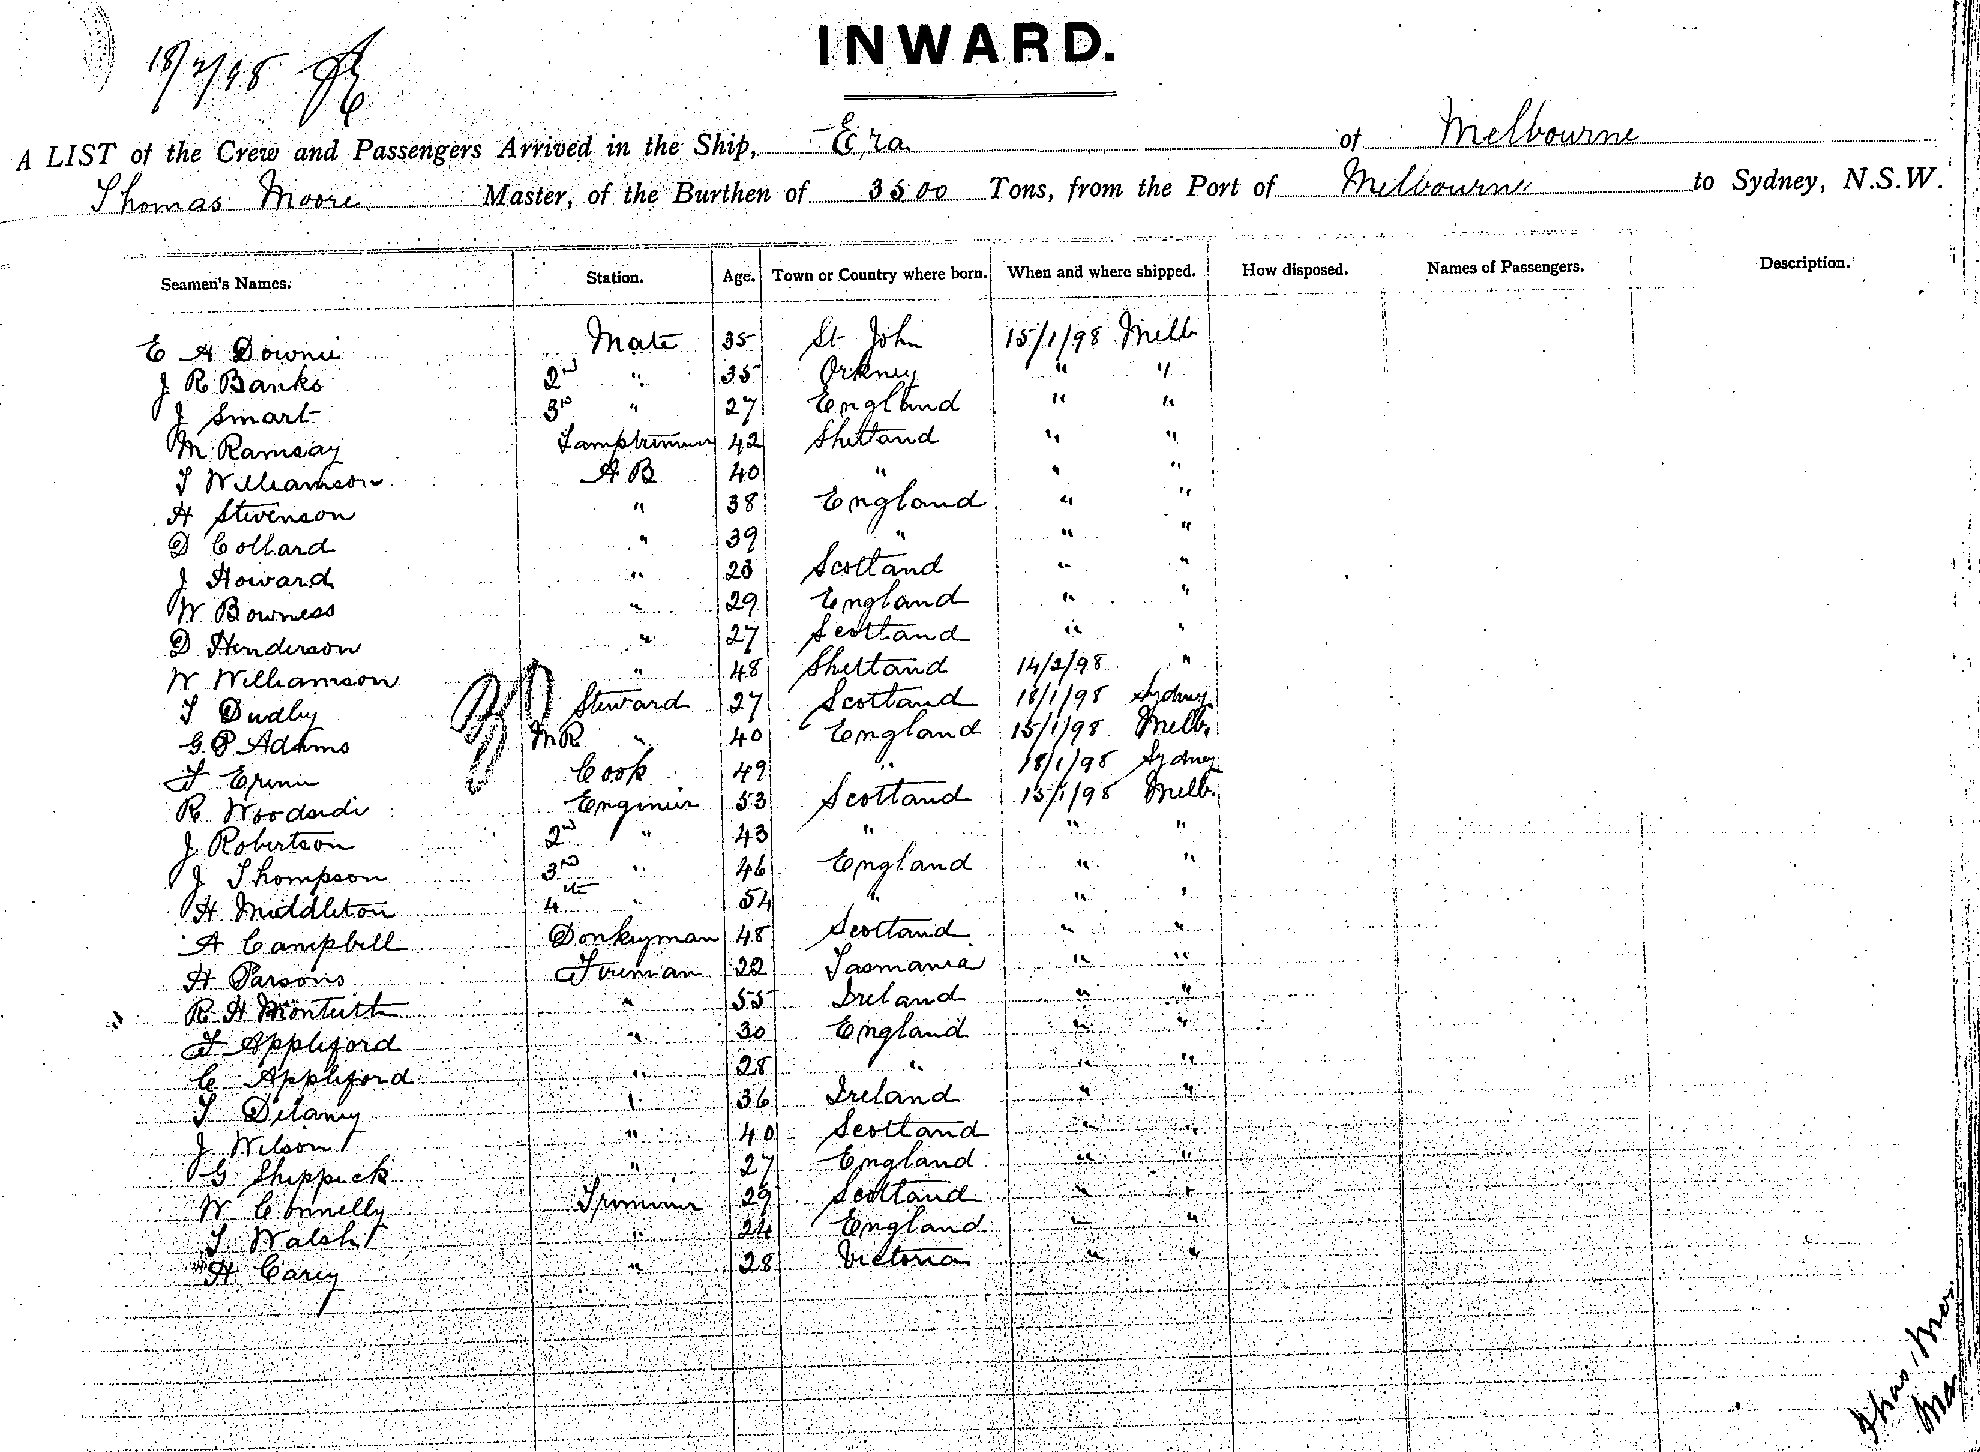 18/2/98
INWARD.
A LIST of the Crew and Passengers Arrived in the Ship, Era of Melbourne
Thomas Moore Master, of the Burthen of 3500 Tons, from the Port of Melbourne to Sydney, N.S.W.
Seamen's Names. Station. Age. Town or Country where born. When and where shipped. How disposed. Names of Passengers. Description.
E A Downie Mate 35 St John 15/1/98 Melb.
J R Banks 2nd " 35 Orkney " "
J Smart 3rd " 27 England " "
M Ramsay Lamptrimmer 42 Shetland " "
T Williamson A B 40 " " "
H Stevenson " 38 England " "
D Collard " 39 " " "
J Howard " 23 Scotland " "
W Bowness " 29 England " "
D Henderson " 27 Scotland " "
W Williamson " 48 Shetland 14/2/98 "
T Dudley Steward 27 Scotland 18/1/98 Sydney
G P Adams M R " 40 England 15/1/98 Melb.
F Cook 49 " 18/1/98 Sydney
R Woodside Engineer 53 Scotland 15/1/98 Melb.
J Robertson 2nd " 43 " " "
J Thompson 3rd " 46 England " "
H Middleton 4th " 54 " " "
A Campbell Donkeyman 48 Scotland " "
H Parsons Fireman 22 Tasmania " "
R H Monteith " 55 Ireland " "
F Appleford " 30 England " "
C Appleford " 28 " " "
T Delaney " 36 Ireland " "
J Wilson " 40 Scotland " "
G Sheppick " 27 England " "
W Connelly Trimmer 29 Scotland " "
T Walsh " 24 England " "
H Carey " 28 Victoria " "
Thos.